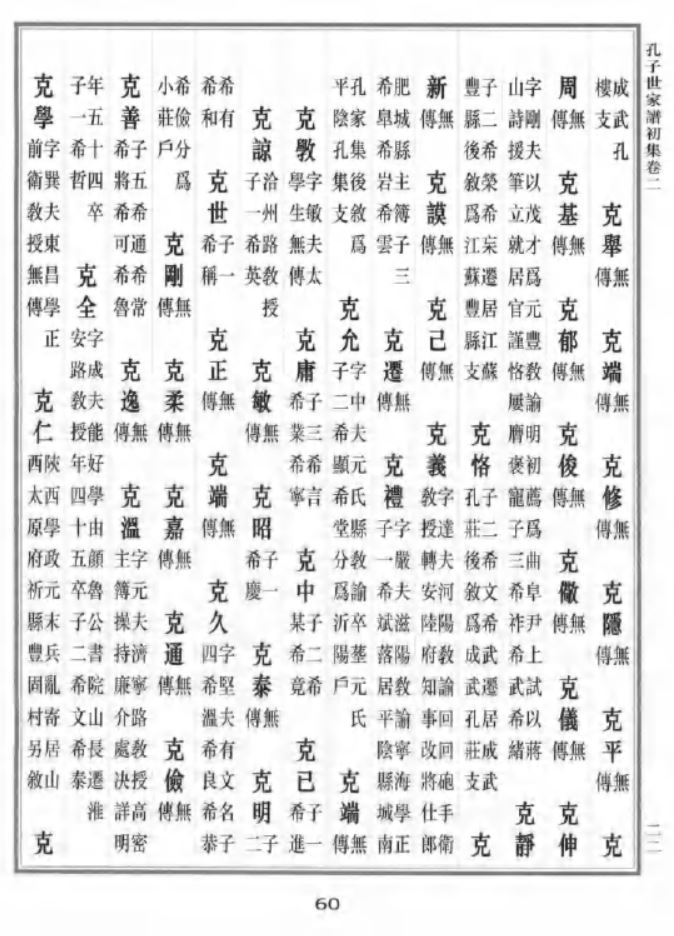 孔子世家譜初集卷二
二二
成武孔樓支 克舉 無傳 克端 無傳 克修 無傳 克隱 無傳 克平 無傳 克
周 無傳 克基 無傳 克郁 無傳 克俊 無傳 克儆 無傳 克儀 無傳 克伸
字剛夫以茂才爲元豐教諭明初薦爲曲阜尹上試以蔣山詩援筆立就居官謹恪屢膺褒寵子三希祚希武希緒 克靜
子二希榮希遷居江蘇豐縣後敘爲江蘇豐縣支 克恪 子二希文希武遷居成武孔莊後敘爲成武孔莊支 克
新 無傳 克謨 無傳 克己 無傳 克義 字達夫河陽教諭回回砲手衛教授轉安陸府知事改將仕郎
肥城縣主簿子三希皐希岩希雲 克遷 無傳 克禮 字嚴夫滋陽教諭寧海學正子一希斌落居平陰縣城南
孔家集後敘爲平陰孔集支 克允 字中夫元氏縣教諭卒墓元氏子二希顯希堂分爲沂陽戶 克端 無傳
克斆 字敏夫太學生無傳 克庸 子三希言希業希寧 克中 子二希某希竟 克已 子一希進
克諒 洽州路教授子一希英 克敏 無傳 克昭 子一希慶 克泰 無傳 克明 子二
希有希和 克世 子一希稱 克正 無傳 克端 無傳 克久 字堅夫有文名子四希溫希良希恭
希儉分爲小莊戶 克剛 無傳 克柔 無傳 克嘉 無傳 克通 無傳 克儉 無傳
克善 子五希通希常希將希可希魯 克逸 無傳 克溫 字元夫濟寧路教授高密主簿操持廉介處決詳明
年五十四卒子一希哲 克全 字成夫能好學由顏魯公書院山長遷淮安路教授年四十五卒子二希文希泰
克學 字巽夫東昌學正前衛教授無傳 克仁 陝西學政元末兵亂寄居山西太原府祈縣豐固村另敘 克
60